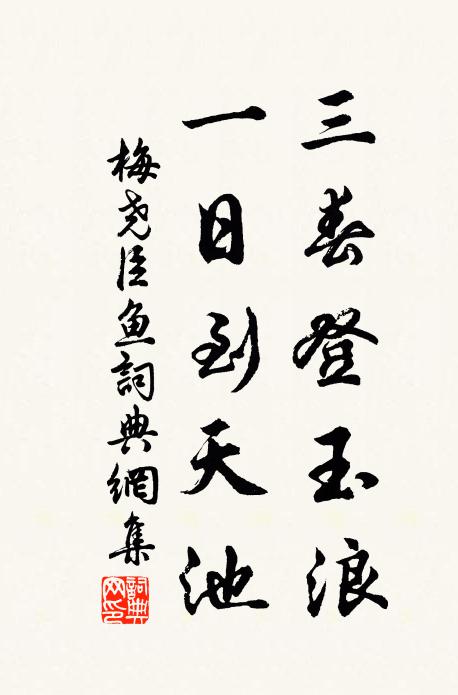 三春登玉浪
一日到天池
梅尧臣鱼詞典網集
詞典网印